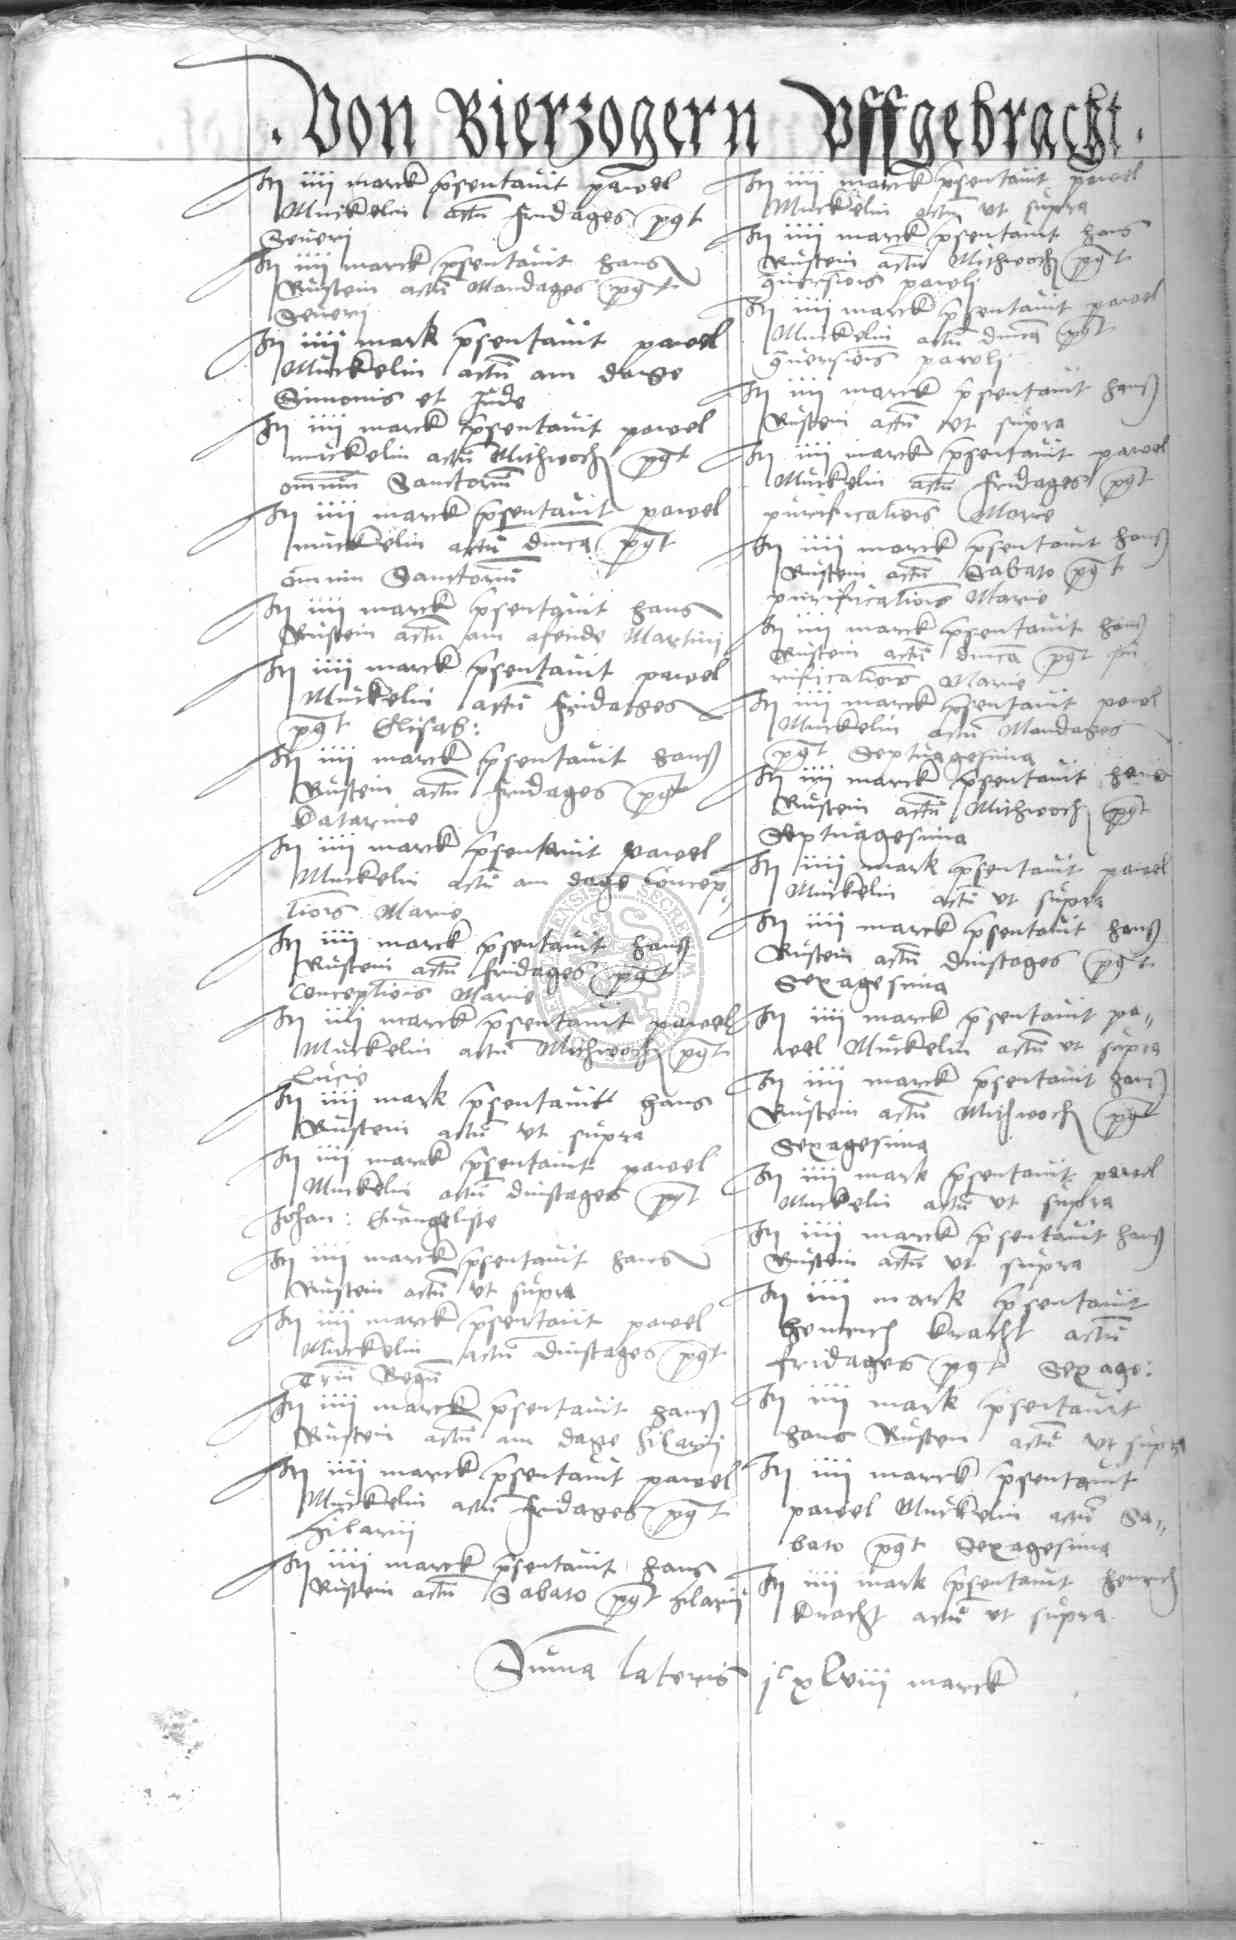 . Von Bierzogern Vffgebracht .
It iiii marck p̄sentavit pawel
Muckelin actū fridages pꝰt
Severi
It iiii marck p̄sentavit hans
Rustein actū Mandages pꝰt
Severi
It iiii mark p̄sentavit pawel
Muckelin actū am dage
Simonis et Jude
It iiii marck p̄sentavit pawel
muckelin actū Mithwoch pꝰt
omniū Sanctorū
It iiii marck p̄sentavit pawel
muckelin actū dn̄ica pꝰt
omniū Sanctorū
It iiii marck p̄sentavit hans
Rustein actū am afende Martini
It iiii marck p̄sentavit pawel
Muckelin actū fridages
pꝰt Elisab:
It iiii marck p̄sentavit hanß
Rustein actū fridages pꝰt
Katarine
It iiii marck p̄sentavit pawel
Muckelin actū am dage Concep„
tiōis Marie
It iiii marck p̄sentavit hanß
Rustein actū fridages pꝰt
Conceptiōis Marie
It iiii marck p̄sentavit pawel
Muckelin actū Mithwoch pꝰt
Lucie
It iiii mark p̄sentavit hans
Rustein actū vt supra
It iiii marck p̄sentavit pawel
Muckelin actū dinstages pꝰt
Johan: Evangeliste
It iiii marck p̄sentavit hans
Rustein actū vt supra
It iiii marck p̄sentavit pawel
Muckelin actū dinstages pꝰt
Triū Regū
It iiii marck p̄sentavit hanß
Rustein actū am dage hilarij
It iiii marck p̄sentavit pawel
Muckelin actū fridages pꝰt
hilarij
It iiii marck p̄sentavit hans
Rustein actū Sabato pꝰt hilarij
It iiii marck p̄sentavit pawel
Muckelin actū vt supra
It iiii marck p̄sentavit hans
Rustein actū Mithwoch pꝰt
ꝯversiōis pawli
It iiii marck p̄sentavit pawel
Muckelin actū dn̄ica pꝰt
ꝯversiōis pawli
It iiii marck p̄sentavit hanß
Rustein actū vt supra
It iiii marck p̄sentavit pawel
Muckelin actū fridages pꝰt
purificatiōis Marie
It iiii marck p̄sentavit hanß
Rustein actū Sabato pꝰt
purificatiōis Marie
It iiii marck p̄sentavit hanß
Rustein actū dn̄ica pꝰt pu
rificatiōis Marie
It iiii marck p̄sentavit pawel
Muckelin actū Mandages
pꝰt Septuagesima
It iiii marck p̄sentavit hans
Rustein actū Mithwoch pꝰt
Septuagesima
It iiii mark p̄sentavit pawel
Muckelin actū vt supra
It iiii marck p̄sentavit hanß
Rustein actū dinstages pꝰt
Sexagesima
It iiii marck p̄sentavit pa„
wel Muckelin actū vt supra
It iiii marck p̄sentavit hanß
Rustein actū Mithwoch pꝰt
Sexagesima
It iiii mark p̄sentavit pawel
Muckelin actū vt supra
It iiii marck p̄sentavit hanß
Rustein actū vt supra
It iiii mark p̄sentavit
henrich Kracht actū
fridages pꝰt Sexage:
It iiii mark p̄sentavit
hans Rustein actū vt supra
It iiii marck p̄sentavit
pawel Muckelin actū Sa„
bato pꝰt Sexagesima
It iiii mark p̄sentavit henrich
Kracht actū vt supra
Sūma lateris jᶜ xlviii marck